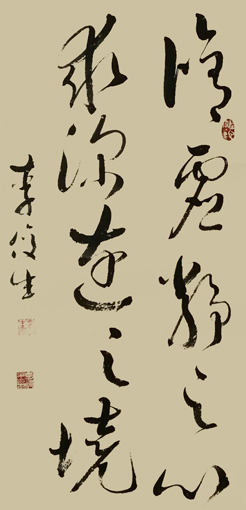 脩虚静之心
求深远之境
李俊生